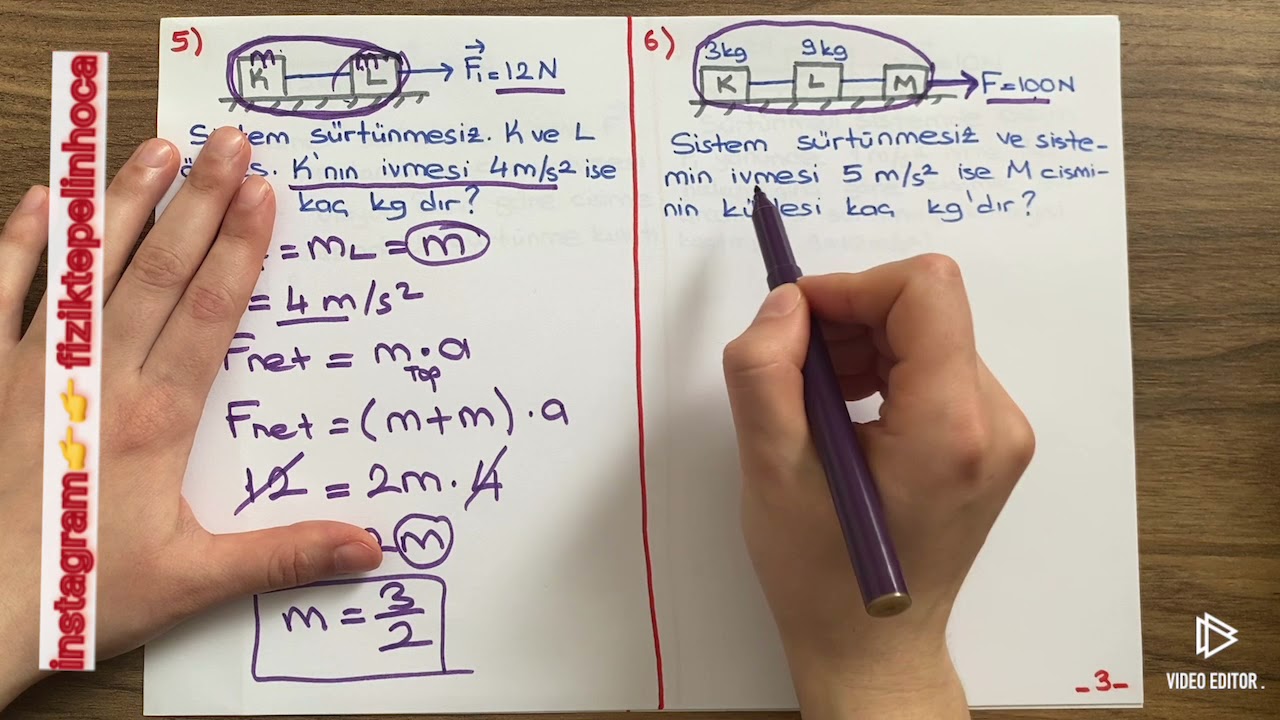 instagram👉👉 fiziktepelinhoca
5)
m m
K L
F₁ = 12N
sürtünmesiz. K ve L
K'nın ivmesi 4m/s² ise
kaç kg dır?
= mL = m
= 4 m/s²
Fnet = m . a
Top
Fnet = (m+m) . a
12 = 2m . 4
m
m = 3/2
6)
3kg 9kg
K L M
F=100N
Sistem sürtünmesiz ve siste-
min ivmesi 5 m/s² ise M cismi-
nin kaç kg'dır?
-3-
VIDEO EDITOR .